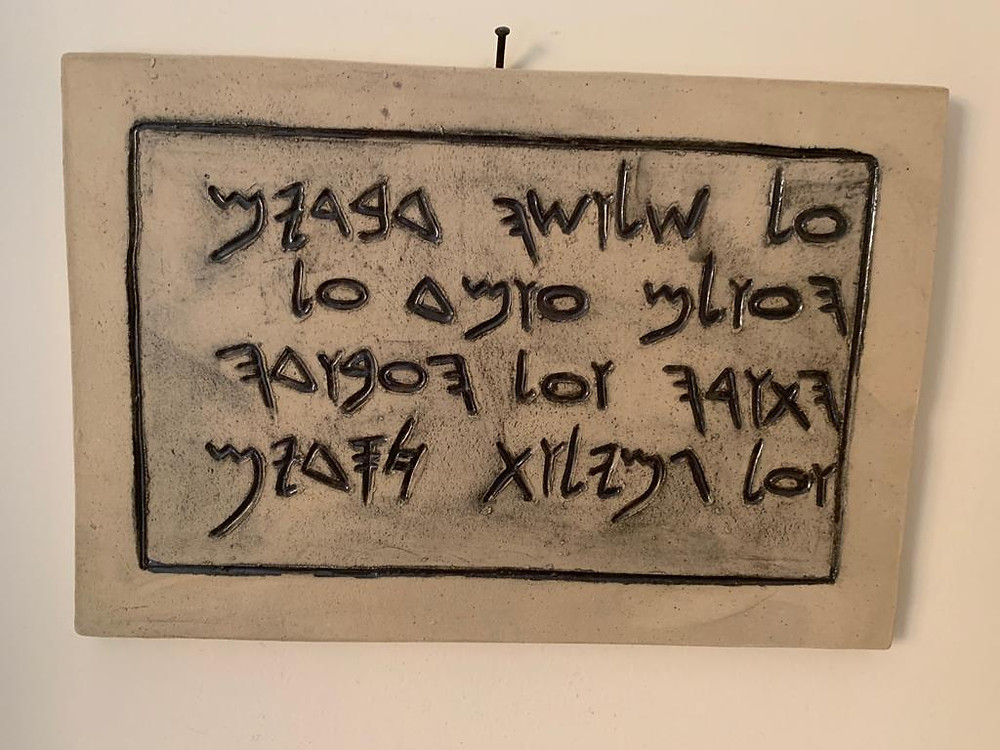 𐤏𐤋 𐤔𐤋𐤅𐤔𐤄 𐤃𐤁𐤓𐤉𐤌
𐤄𐤏𐤅𐤋𐤌 𐤏𐤅𐤌𐤃 𐤏𐤋
𐤄𐤕𐤅𐤓𐤄 𐤅𐤏𐤋 𐤄𐤏𐤁𐤅𐤃𐤄
𐤅𐤏𐤋 𐤂𐤌𐤉𐤋𐤅𐤕 𐤇𐤎𐤃𐤉𐤌